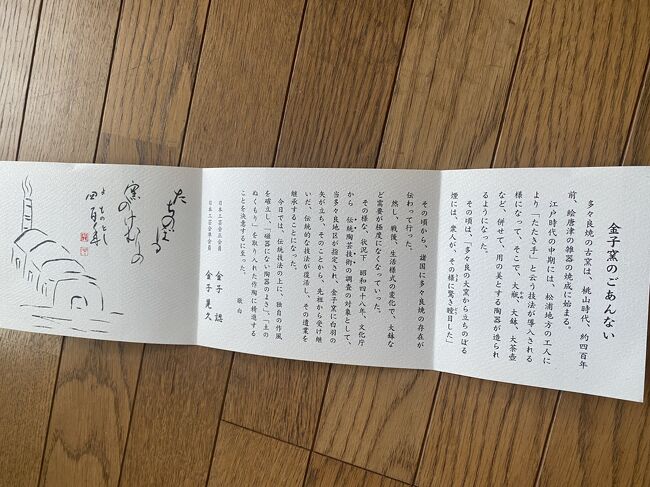 金子窯のごあんない
多々良焼の古窯は、桃山時代、約四百年
前、絵唐津の雑器の焼成に始まる。
江戸時代の中期には、松浦地方の工人に
より「たたき手」と云う技法が導入される
様になって、そこで、大瓶、大鉢、大茶壺
など、併せて、用の美とする陶器が造られ
るようになった。
その頃は、「多々良の大窯から立ちのぼる
煙には、衆人が、その様に驚き瞠目した」
その頃から、諸国に多々良焼の存在が
伝わって行った。
然し、戦後、生活様式の変化で、大鉢な
ど需要が極度になくなっていった。
その様な、状況下、昭和四十八年、文化庁
から、伝統陶芸技術の調査の対象として、
当多々良地区が指定され、金子窯に白羽の
矢が立ち、そのことから、先祖から受け継
いだ、伝統的な技法が復活し、その遺業を
継承することになった。
今日では、伝統技法の上に、独自の作風
を確立し、「磁器にない陶器のよさ」、「土の
ぬくもり」を取り入れた作陶に精進する
ことを決意するに至った。
敬白
日本工芸会正会員 金子 認
日本工芸会準会員 金子 晃久
たちのぼる
窯のけむりの